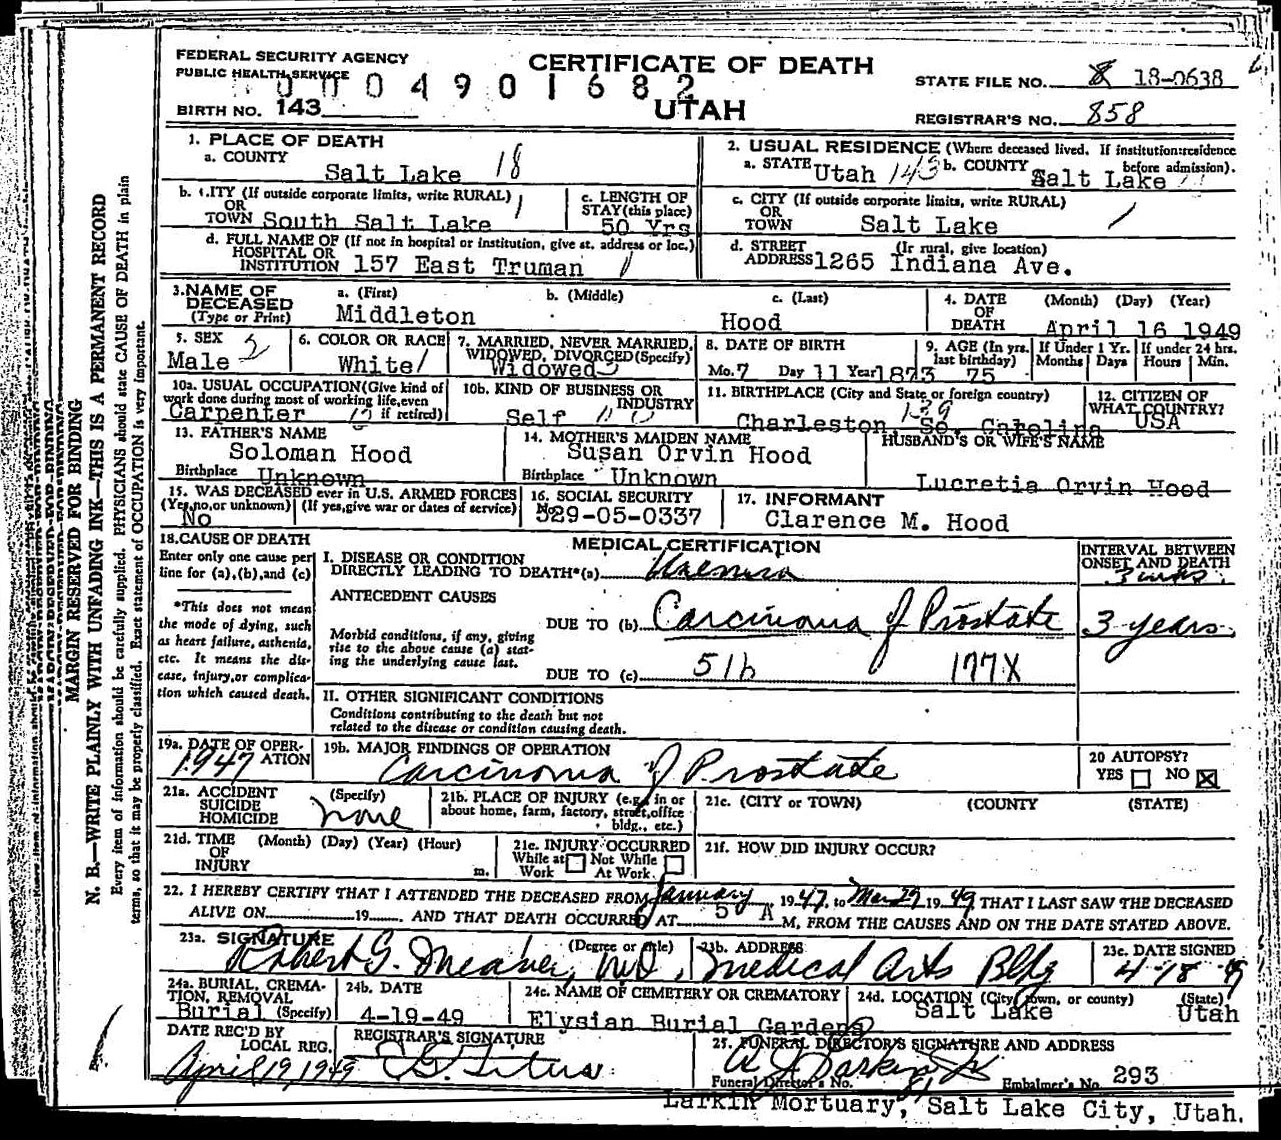 FEDERAL SECURITY AGENCY
PUBLIC HEALTH SERVICE
CERTIFICATE OF DEATH
UTAH
0 0 0 4 9 0 1 6 8 2
BIRTH NO. 143
STATE FILE NO. 18-0638
REGISTRAR'S NO. 858
MARGIN RESERVED FOR BINDING
N. B.—WRITE PLAINLY WITH UNFADING INK—THIS IS A PERMANENT RECORD
Every item of information should be carefully supplied. PHYSICIANS should state CAUSE OF DEATH in plain
terms, so that it may be properly classified. Exact statement of OCCUPATION is very important.
1. PLACE OF DEATH
a. COUNTY
Salt Lake 18
b. CITY (If outside corporate limits, write RURAL)
OR
TOWN South Salt Lake
c. LENGTH OF
STAY (this place)
50 Yrs
d. FULL NAME OF (If not in hospital or institution, give st. address or loc.)
HOSPITAL OR
INSTITUTION 157 East Truman
2. USUAL RESIDENCE (Where deceased lived. If institution:residence
before admission).
a. STATE Utah 143 b. COUNTY Salt Lake
c. CITY (If outside corporate limits, write RURAL)
OR
TOWN Salt Lake
d. STREET (If rural, give location)
ADDRESS 1265 Indiana Ave.
3. NAME OF
DECEASED
(Type or Print)
a. (First) b. (Middle) c. (Last)
Middleton Hood
4. DATE
OF
DEATH
(Month) (Day) (Year)
April 16 1949
5. SEX
Male 2
6. COLOR OR RACE
White
7. MARRIED, NEVER MARRIED,
WIDOWED, DIVORCED (Specify)
Widowed
8. DATE OF BIRTH
Mo. 7 Day 11 Year 1873
9. AGE (In yrs.
last birthday)
75
If Under 1 Yr.
Months Days
If under 24 hrs.
Hours Min.
10a. USUAL OCCUPATION (Give kind of
work done during most of working life, even
if retired)
Carpenter
10b. KIND OF BUSINESS OR
INDUSTRY
Self
11. BIRTHPLACE (City and State or foreign country)
139
Charleston, So. Carolina
12. CITIZEN OF
WHAT COUNTRY?
USA
13. FATHER'S NAME
Soloman Hood
Birthplace Unknown
14. MOTHER'S MAIDEN NAME
Susan Orvin Hood
Birthplace Unknown
HUSBAND'S OR WIFE'S NAME
Lucretia Orvin Hood
15. WAS DECEASED ever in U.S. ARMED FORCES
(Yes, no, or unknown) (If yes, give war or dates of service)
No
16. SOCIAL SECURITY
No.
529-05-0337
17. INFORMANT
Clarence M. Hood
18. CAUSE OF DEATH
Enter only one cause per
line for (a), (b), and (c)
*This does not mean
the mode of dying, such
as heart failure, asthenia,
etc. It means the dis-
ease, injury, or complica-
tion which caused death.
MEDICAL CERTIFICATION
INTERVAL BETWEEN
ONSET AND DEATH
I. DISEASE OR CONDITION
DIRECTLY LEADING TO DEATH*(a) Uremia 3 wks.
ANTECEDENT CAUSES
DUE TO (b) Carcinoma of Prostate 3 years
Morbid conditions, if any, giving
rise to the above cause (a) stat-
ing the underlying cause last.
DUE TO (c) 51b 177X
II. OTHER SIGNIFICANT CONDITIONS
Conditions contributing to the death but not
related to the disease or condition causing death.
19a. DATE OF OPER-
ATION
1947
19b. MAJOR FINDINGS OF OPERATION
Carcinoma of Prostate
20 AUTOPSY?
YES NO
21a. ACCIDENT (Specify)
SUICIDE
HOMICIDE
none
21b. PLACE OF INJURY (e.g., in or
about home, farm, factory, street, office
bldg., etc.)
21c. (CITY or TOWN) (COUNTY) (STATE)
21d. TIME (Month) (Day) (Year) (Hour)
OF
INJURY m.
21e. INJURY OCCURRED
While at Not While
Work At Work
21f. HOW DID INJURY OCCUR?
22. I HEREBY CERTIFY THAT I ATTENDED THE DECEASED FROM January, 1947, to Mar 29 1949 THAT I LAST SAW THE DECEASED
ALIVE ON 19 AND THAT DEATH OCCURRED AT 5 A M, FROM THE CAUSES AND ON THE DATE STATED ABOVE.
23a. SIGNATURE (Degree or title)
Robert G. MD
23b. ADDRESS
Medical Arts Bldg
23c. DATE SIGNED
4-18-49
24a. BURIAL, CREMA-
TION, REMOVAL
Burial (Specify)
24b. DATE
4-19-49
24c. NAME OF CEMETERY OR CREMATORY
Elysian Burial Gardens
24d. LOCATION (City, town, or county) (State)
Salt Lake Utah
DATE REC'D BY
LOCAL REG.
April 19, 1949
REGISTRAR'S SIGNATURE
Titus
25. FUNERAL DIRECTOR'S SIGNATURE AND ADDRESS
A J Larkin Jr
Funeral Director's No. 81 Embalmer's No. 293
Larkin Mortuary, Salt Lake City, Utah.